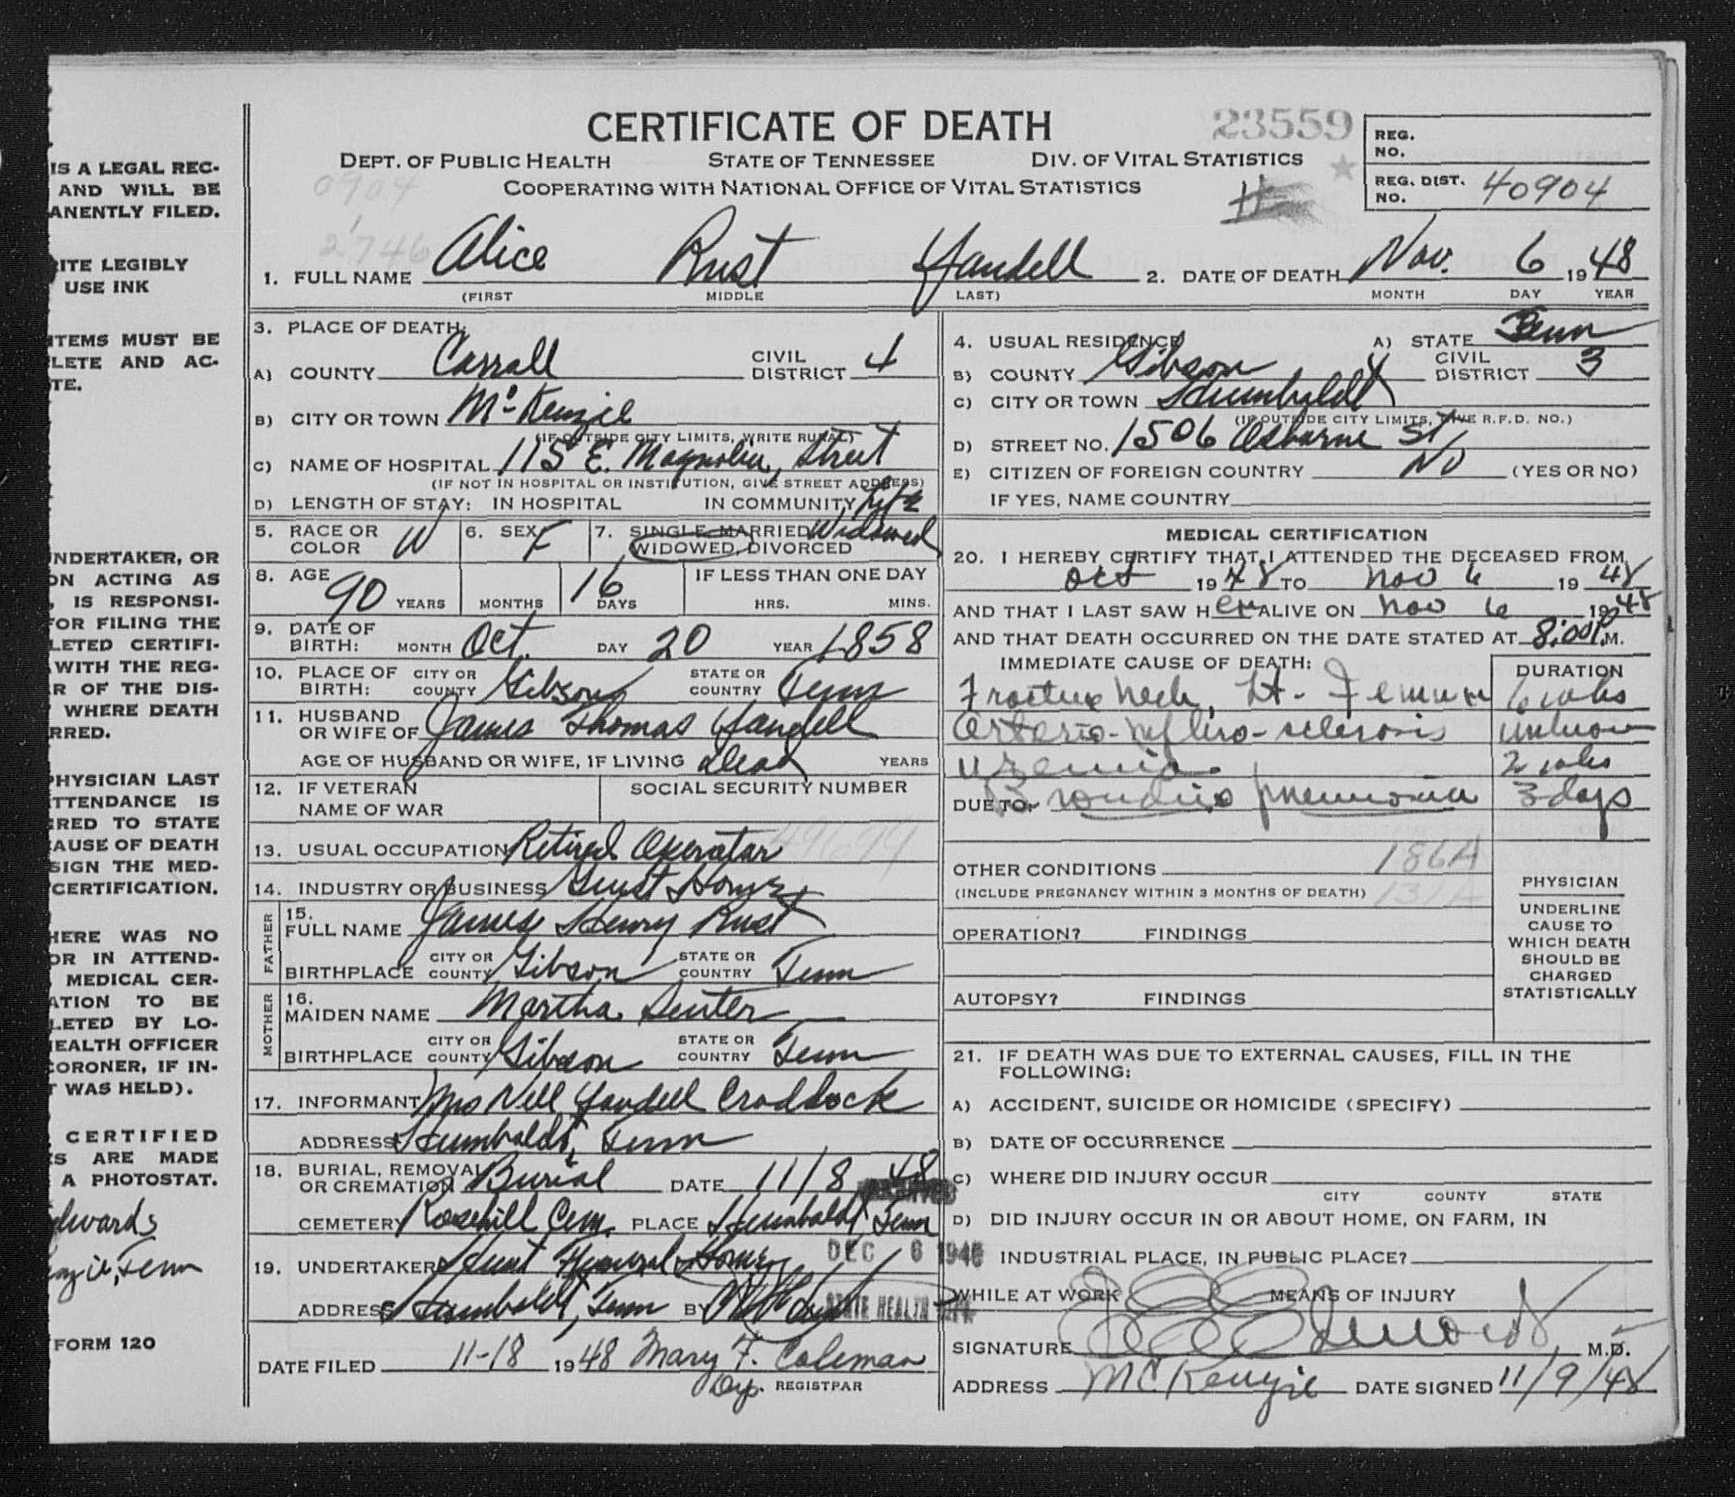 CERTIFICATE OF DEATH
23559
DEPT. OF PUBLIC HEALTH STATE OF TENNESSEE DIV. OF VITAL STATISTICS
COOPERATING WITH NATIONAL OFFICE OF VITAL STATISTICS
REG. NO.
REG. DIST. NO. 40904
0904
2746
1. FULL NAME Alice Rust Yandell
(FIRST MIDDLE LAST)
2. DATE OF DEATH Nov. 6 1948
MONTH DAY YEAR
3. PLACE OF DEATH
A) COUNTY Carroll CIVIL DISTRICT 4
B) CITY OR TOWN McKenzie
(IF OUTSIDE CITY LIMITS, WRITE RURAL)
C) NAME OF HOSPITAL 115 E. Magnolia, Street
(IF NOT IN HOSPITAL OR INSTITUTION, GIVE STREET ADDRESS)
D) LENGTH OF STAY: IN HOSPITAL IN COMMUNITY Life
5. RACE OR COLOR W 6. SEX F 7. SINGLE MARRIED WIDOWED, DIVORCED Widowed
8. AGE 90 YEARS MONTHS 16 DAYS IF LESS THAN ONE DAY HRS. MINS.
9. DATE OF BIRTH: MONTH Oct. DAY 20 YEAR 1858
10. PLACE OF BIRTH: CITY OR COUNTY Gibson STATE OR COUNTRY Tenn
11. HUSBAND OR WIFE OF James Thomas Yandell
AGE OF HUSBAND OR WIFE, IF LIVING Dead YEARS
12. IF VETERAN NAME OF WAR SOCIAL SECURITY NUMBER
13. USUAL OCCUPATION Retired Operator
14. INDUSTRY OR BUSINESS Guest Home
FATHER
15. FULL NAME James Henry Rust
BIRTHPLACE CITY OR COUNTY Gibson STATE OR COUNTRY Tenn
MOTHER
16. MAIDEN NAME Martha Senter
BIRTHPLACE CITY OR COUNTY Gibson STATE OR COUNTRY Tenn
17. INFORMANT Mrs Nell Yandell Craddock
ADDRESS Humboldt, Tenn
18. BURIAL, REMOVAL OR CREMATION Burial DATE 11/8 48
CEMETERY Rosehill Cem. PLACE Humboldt, Tenn
19. UNDERTAKER Hunt Funeral Home
DEC 6 1948
ADDRESS Humboldt, Tenn BY
STATE HEALTH DEPT.
DATE FILED 11-18 1948 Mary F. Coleman
Dep. REGISTRAR
4. USUAL RESIDENCE A) STATE Tenn
B) COUNTY Gibson CIVIL DISTRICT 3
C) CITY OR TOWN Humboldt
(IF OUTSIDE CITY LIMITS, GIVE R.F.D. NO.)
D) STREET NO. 1506 Osborne St
E) CITIZEN OF FOREIGN COUNTRY No (YES OR NO)
IF YES, NAME COUNTRY
MEDICAL CERTIFICATION
20. I HEREBY CERTIFY THAT I ATTENDED THE DECEASED FROM
Oct 1948 TO Nov 6 1948
AND THAT I LAST SAW HER ALIVE ON Nov 6 1948
AND THAT DEATH OCCURRED ON THE DATE STATED AT 8:00 P.M.
IMMEDIATE CAUSE OF DEATH: DURATION
Fracture neck, Lt. Femur 6 wks
Arterio-nephro-sclerosis unknown
Uremia 2 wks
DUE TO: Broncho pneumonia 3 days
OTHER CONDITIONS 186A
(INCLUDE PREGNANCY WITHIN 3 MONTHS OF DEATH) 131A
OPERATION? FINDINGS
AUTOPSY? FINDINGS
PHYSICIAN
UNDERLINE
CAUSE TO
WHICH DEATH
SHOULD BE
CHARGED
STATISTICALLY
21. IF DEATH WAS DUE TO EXTERNAL CAUSES, FILL IN THE FOLLOWING:
A) ACCIDENT, SUICIDE OR HOMICIDE (SPECIFY)
B) DATE OF OCCURRENCE
C) WHERE DID INJURY OCCUR
CITY COUNTY STATE
D) DID INJURY OCCUR IN OR ABOUT HOME, ON FARM, IN
INDUSTRIAL PLACE, IN PUBLIC PLACE?
WHILE AT WORK MEANS OF INJURY
SIGNATURE Edwards M.D.
ADDRESS McKenzie DATE SIGNED 11/9/48
IS A LEGAL REC-
AND WILL BE
ANENTLY FILED.
ITE LEGIBLY
USE INK
ITEMS MUST BE
LETE AND AC-
TE.
UNDERTAKER, OR
ON ACTING AS
, IS RESPONSI-
FOR FILING THE
LETED CERTIFI-
WITH THE REG-
R OF THE DIS-
WHERE DEATH
RRED.
PHYSICIAN LAST
TTENDANCE IS
RED TO STATE
CAUSE OF DEATH
SIGN THE MED-
CERTIFICATION.
HERE WAS NO
OR IN ATTEND-
MEDICAL CER-
ATION TO BE
LETED BY LO-
HEALTH OFFICER
CORONER, IF IN-
T WAS HELD).
CERTIFIED
S ARE MADE
A PHOTOSTAT.
dwards
nzie, Tenn
FORM 120